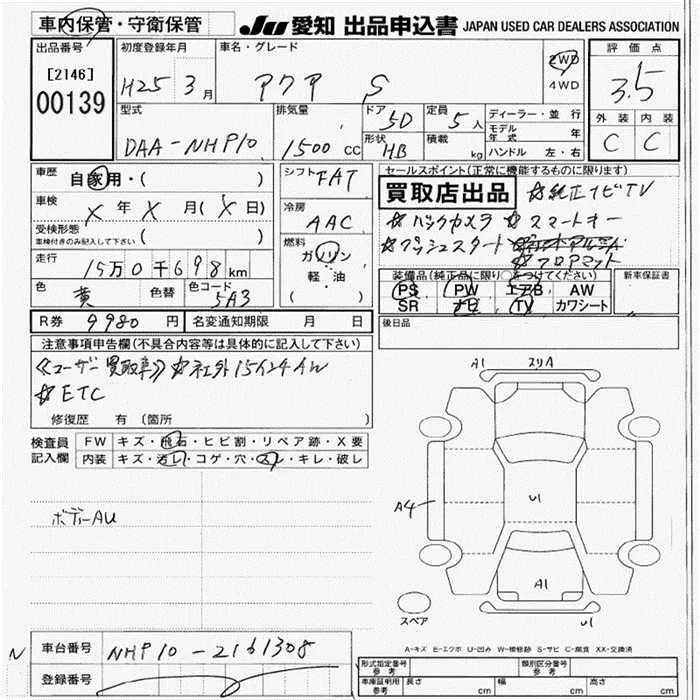 車内保管・守衛保管
JU 愛知 出品申込書 JAPAN USED CAR DEALERS ASSOCIATION
出品番号
[2146]
00139
初度登録年月
H25 3月
車名・グレード
アクア S
2WD
4WD
評価点
3.5
外装 内装
C C
型式
DAA-NHP10
排気量
1500 cc
ドア 5D
形状 HB
定員 5人
積載 kg
ディーラー・並行
モデル年式 年
ハンドル 左・右
車歴 自家用・( )
車検 X 年 X 月 ( X 日)
受検形態
車検付きのみ記入して下さい ( )
走行 15万0千698km
色 黄 色替 色コード 5A3
シフト FAT
冷房 AAC
燃料
ガソリン
軽・油
( )
セールスポイント(正常に機能するものに限ります)
買取店出品 ☆純正ナビTV
☆バックカメラ ☆スマートキー
☆プッシュスタート
☆フロアマット
装備品(純正品に限り○をつけてください)
PS PW エアB AW
SR ナビ TV カワシート
新車保証書
後日品
R券 9980円 名変通知期限 月 日
注意事項申告欄(不具合内容等は具体的に記入して下さい)
《ユーザー買取車》☆社外15インチAW
☆ETC
修復歴 有 〔箇所 〕
検査員記入欄
FW キズ・飛石・ヒビ割・リペア跡・X要
内装 キズ・汚レ・コゲ・穴・スレ・キレ・破レ
ボディーAU
A1 スリA
A4
U1
A1
スペア
U1
A-キズ E-エクボ U-凹み W-補修跡 S-サビ C-腐食 XX-交換済
N 車台番号 NHP10-2161308
登録番号
形式指定番号 参考
類別区分番号 参考
車庫証明用 参考 長さ cm 幅 cm 高さ cm